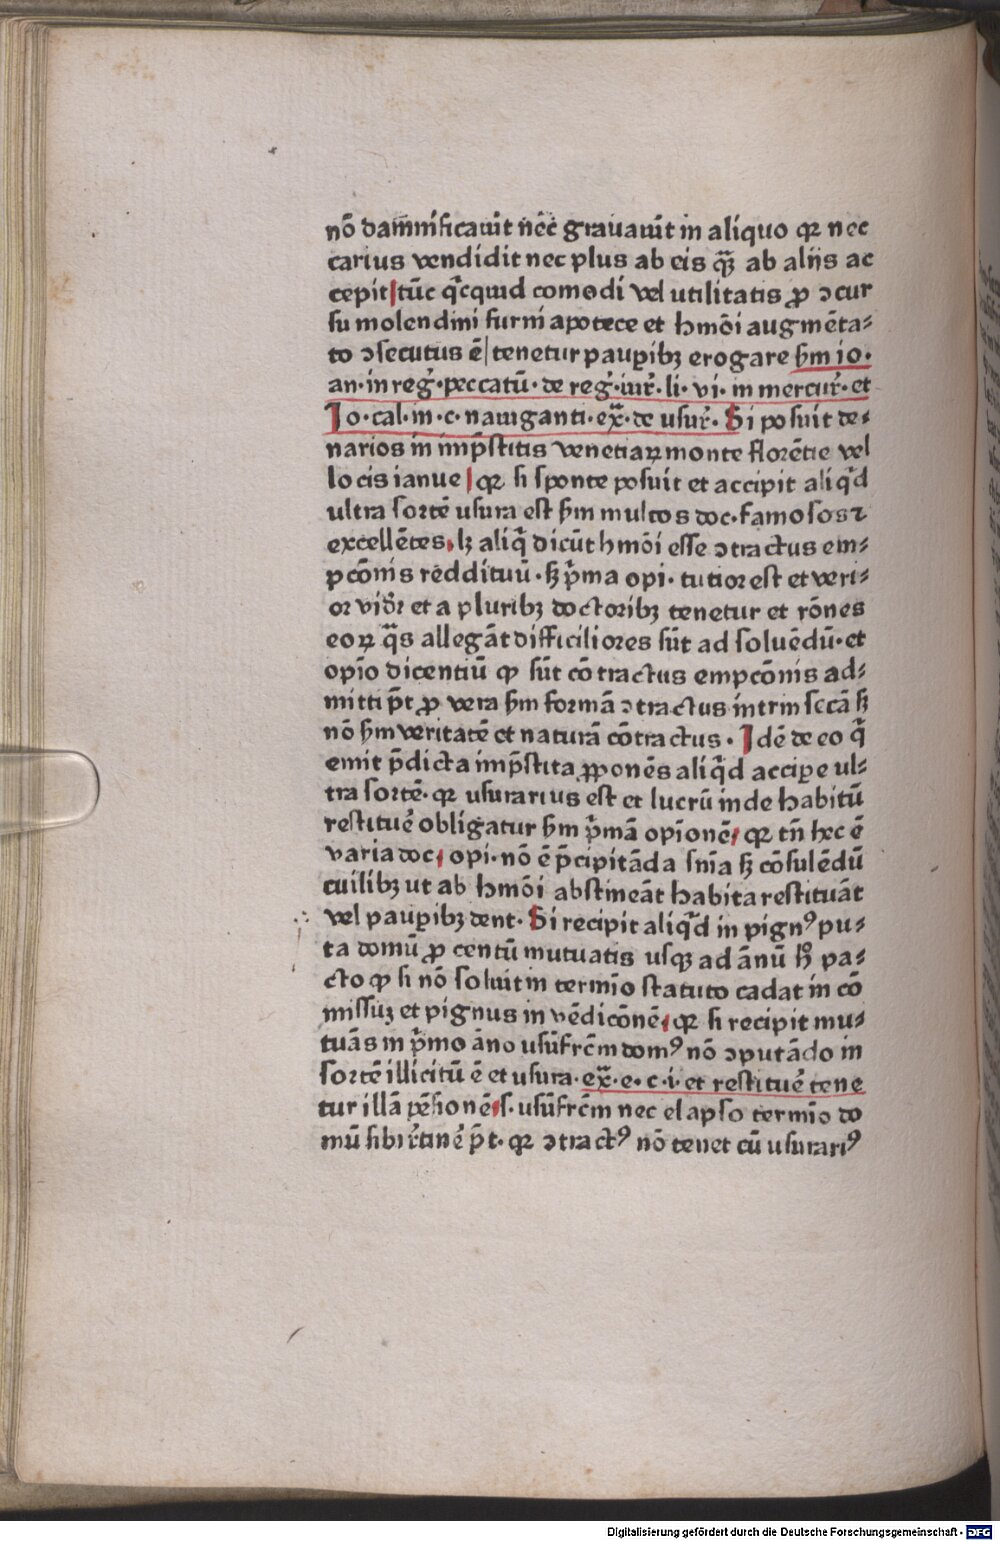 nō dam̄nificauit nēc̄ grauauit in aliquo qꝛ nec
carius vendidit nec plus ab eis qꝫ̄ ab aliis ac
cepit tūc qͥcquid comodi vel utilitatis ꝓ ɔcur
su molendini furni apotece et hmōi augmēta⸗
to ɔsecutus ē tenetur pauꝑibꝫ erogare ẜm io·
an·in reg̛·peccatū·de reg̛·iur̛·li·vi·in mercur̛·et
Io·cal·in·c·nauiganti·ex̄·de usur̛·Si posuit de⸗
narios in imp̄stitis venetiaꝝ monte florētie vel
locis ianue qꝛ si sponte posuit et accipit aliqͥd
ultra sortē usura est ẜm multos doc·famosos ⁊
excellētes·lꝫ aliqͥ dicūt hmōi esse ɔtractus em⸗
pcōnis reddituū·sꝫ pͥma opi·tutior est et veri⸗
or vid̛r et a pluribꝫ doctoribꝫ tenetur et rōnes
eoꝝ qͣs allegāt difficiliores sūt ad soluēdū·et
opīo dicentiū ꝙ sūt cōtractus empcōnis ad⸗
mitti p̄t ꝓ vera ẜm formā ɔtractus intrinsecā sꝫ
nō ẜm veritatē et naturā cōtractus·Idē de eo qͥ
emit p̄dicta imp̄stita ꝓponēs aliqͥd acciꝑe ul⸗
tra sortē·qꝛ usurarius est et lucrū inde habitū
restituē̛ obligatur ẜm pͥmā opīonē·qꝛ tn̄ hec ē
varia doc·opi·nō ē p̄cipitāda snīa sꝫ cōsulēdū
cuilibꝫ ut ab hmōi abstineāt habita restituāt
vel pauꝑibꝫ dent·Si recipit aliqͥd in pignꝰ pu⸗
ta domū ꝓ centū mutuatis usqꝫ ad ānū hͦ pa⸗
cto ꝙ si nō soluit in termīo statuto cadat in cō
missuꝫ et pignus in vēdicōnē·qꝛ si recipit mu⸗
tuās in pͥmo āno usūfrc̄m domꝰ nō ɔputādo in
sortē illicitū ē et usura·ex̄·e·c·i·et restituē̛ tene
tur illā pēsionē·s·usūfrc̄m nec elapso termīo do
mū sibi r̛tinē̛ p̄t·qꝛ ɔtractꝰ nō tenet cū usurariꝰ
Digitalisierung gefördert durch die Deutsche Forschungsgemeinschaft - DFG